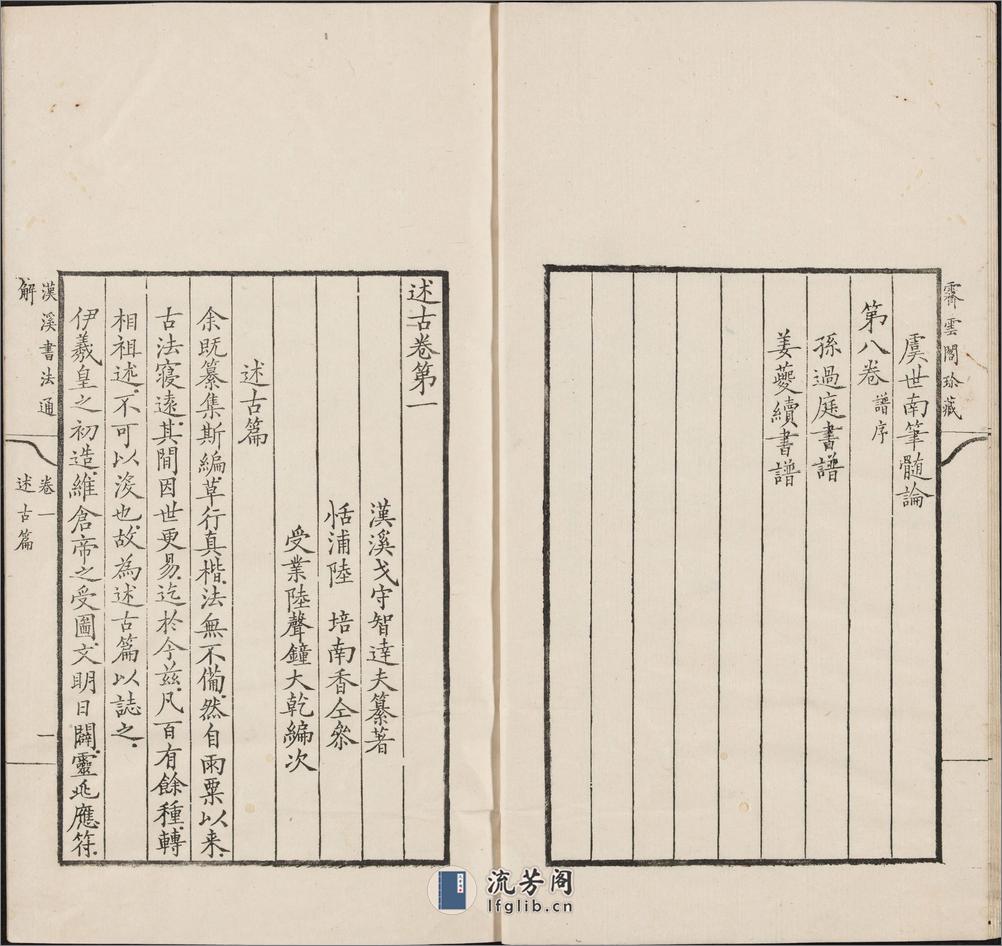 霽雲閣珍藏
虞世南筆髓論
第八卷 譜序
孫過庭書譜
姜夔續書譜
述古卷第一
漢溪戈守智達夫纂著
恬浦陸 培南香仝叅
受業陸聲鐘大乾編次
述古篇
余既纂集斯編草行真楷法無不備然自雨粟以来
古法寖遠其閒因世更易迄於今兹凡百有餘種轉
相祖述不可以没也故為述古篇以誌之
伊羲皇之初造維倉帝之受圖文明日闢靈兆應符
漢溪書法通解
卷一
述古篇
一
流芳阁
lfglib.cn